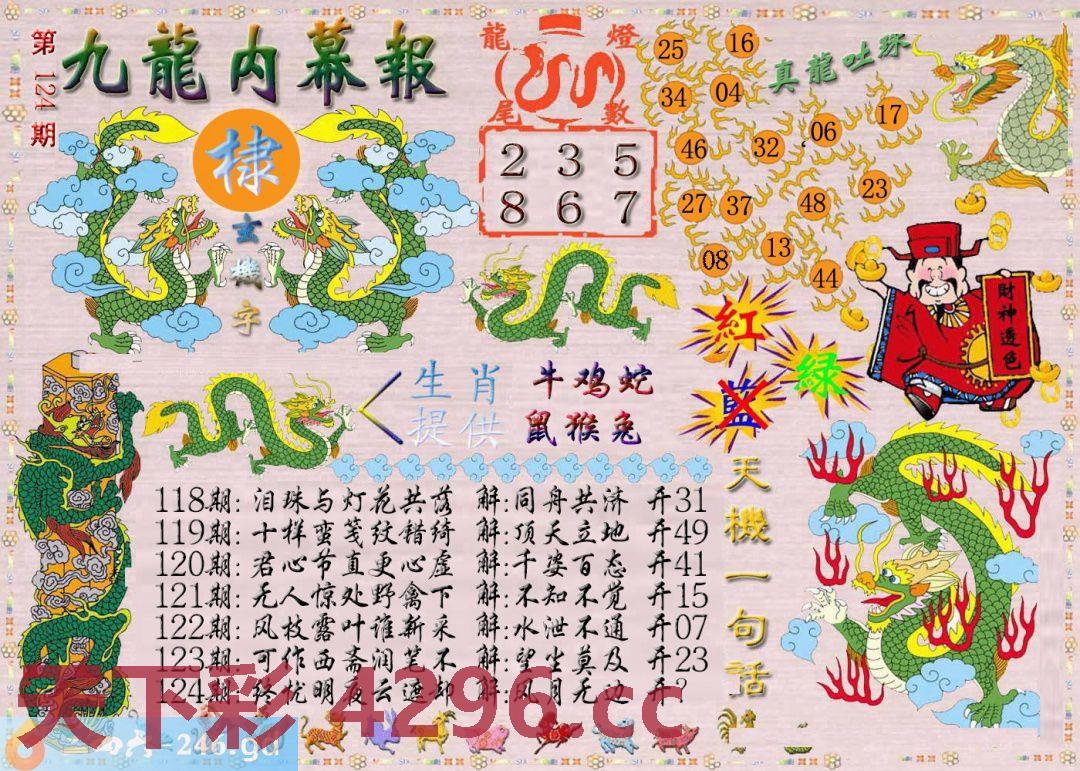 第124期
九龍内幕報
棣
玄機字
龍燈
尾數
2 3 5
8 6 7
真龍吐珠
25 16
34 04
46 32 06 17
27 37 48 23
08 13 44
財神透色
紅
綠
藍
生肖提供
牛鸡蛇
鼠猴兔
天機一句話
118期: 泪珠与灯花共落 解:同舟共济 开31
119期: 十样蛮笺纹错绮 解:顶天立地 开49
120期: 君心节直更心虚 解:千姿百态 开41
121期: 无人惊处野禽下 解:不知不觉 开15
122期: 风枝露叶谁新采 解:水泄不通 开07
123期: 可作西斋润笔不 解:望尘莫及 开23
124期: 终忧明夜云遮却 解:风月无边 开?
天下彩 4296.cc
=246.gd